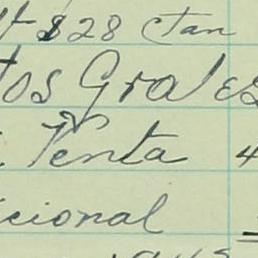 $28 ctan
tos Grales
Venta 4
cional